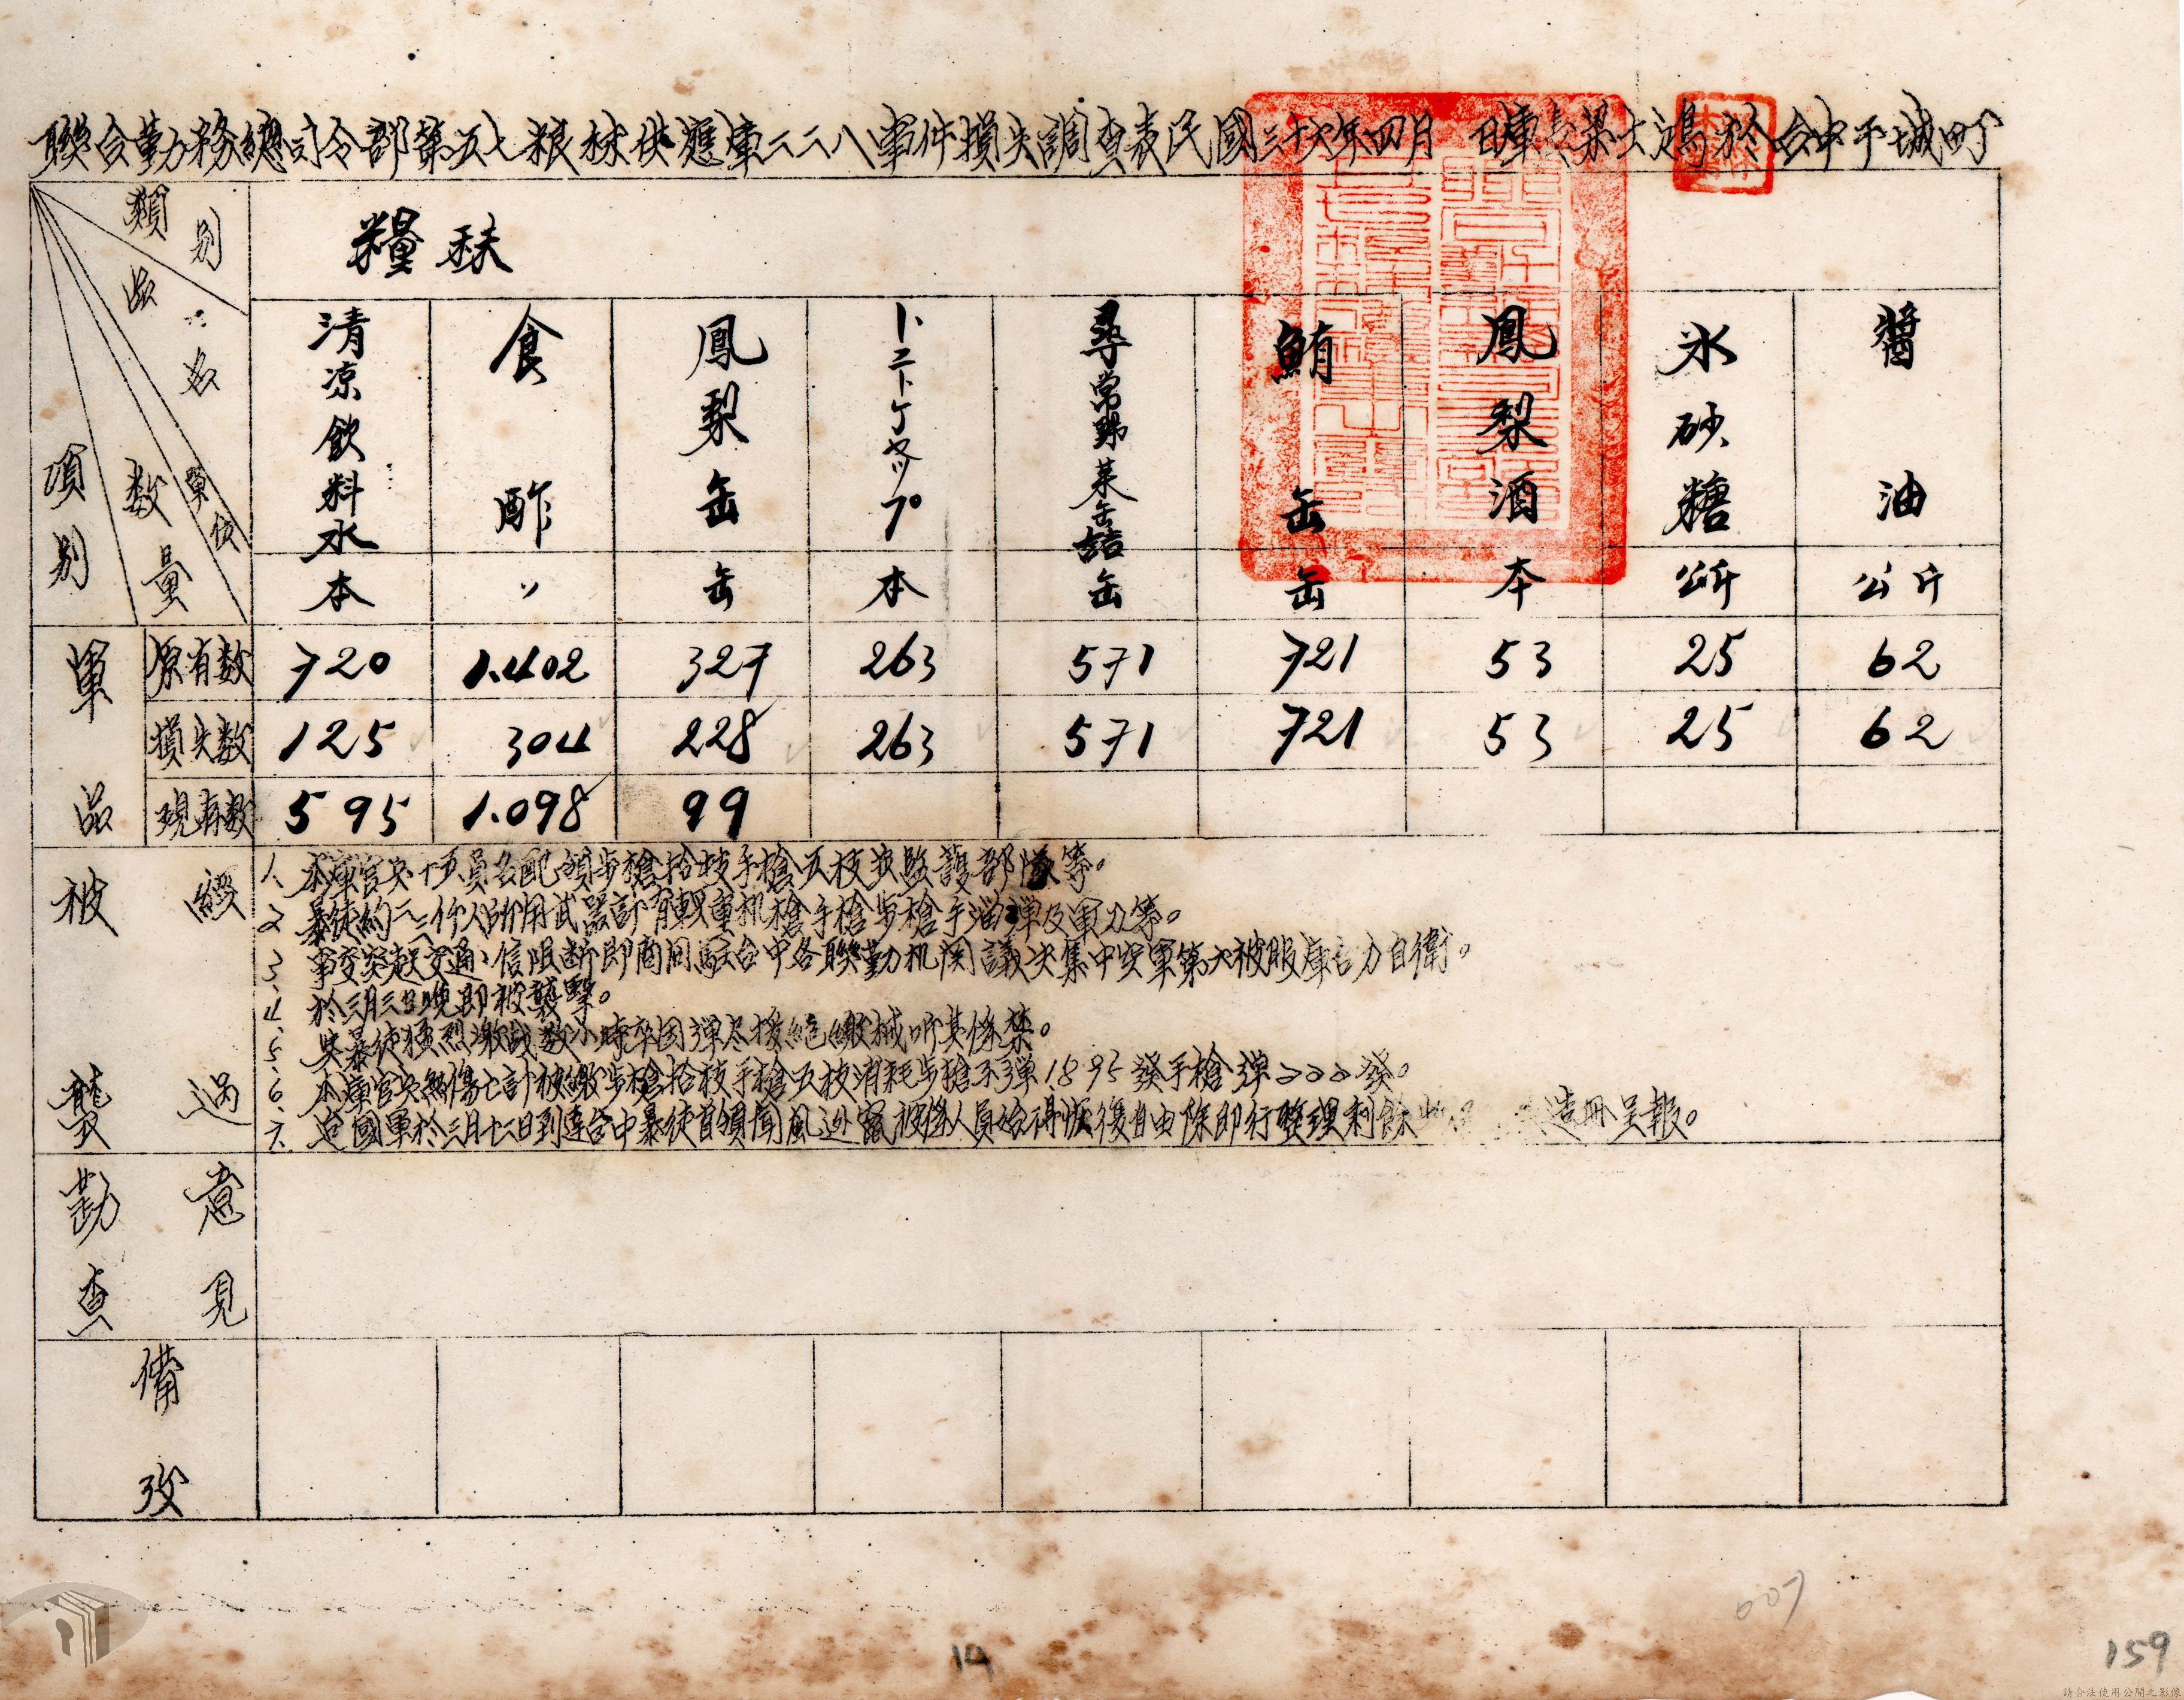 聯合勤務總司令部第五七粮秣供應庫二二八事件損失調查表民國三十六年四月　日庫長梁士鴻於台中干城町
類別
品名
單位
數量
項別
糧秣
清凉飲料水
食酢
鳳梨缶
トマトケチャップ
尋常野菜缶詰
鮪缶
鳳梨酒
氷砂糖
醬油
本
〃
缶
本
缶
缶
本
公斤
公斤
軍品
原有数
720
1.402
327
263
571
721
53
25
62
損失数
125
304
228
263
571
721
53
25
62
現有数
595
1.098
99
被襲經過
1、本庫官兵十五員名配領步槍拾枝手槍五枝及監護部隊等。
2 暴徒約二三仟人所用武器計有輕重机槍手槍步槍手溜彈及軍刀等。
3、事变突起交通、信阻断即商同駐台中各聯勤机関議决集中空軍第六被服庫合力自衛。
4、於三月三日晚即被襲擊。
5、与暴徒猛烈激战数小時卒因彈尽援絕繳械听其俘禁。
6、本庫官兵無傷亡計被繳步槍拾枝手槍五枝消耗步槍子彈1895發手槍彈222發。
7、迨國軍於三月十三日到達台中暴徒首領聞風逃竄被俘人員始得恢復自由除即行整理剩餘 造冊呈報。
勘查意見
備攷
14
007
159
請合法使用公開之影像